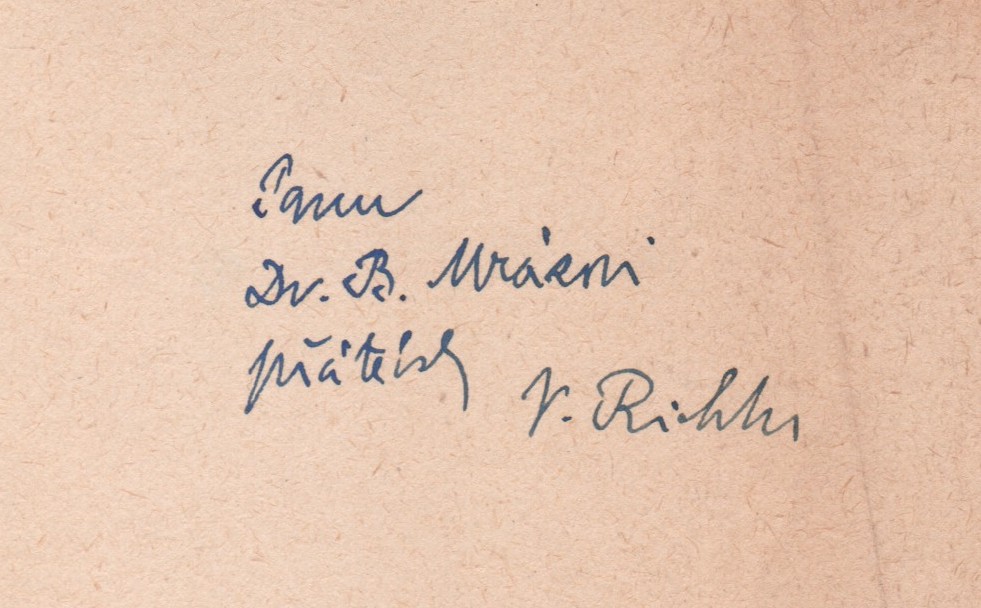 Panu
Dr. B. Mrázovi
přátelsky
V. Richter